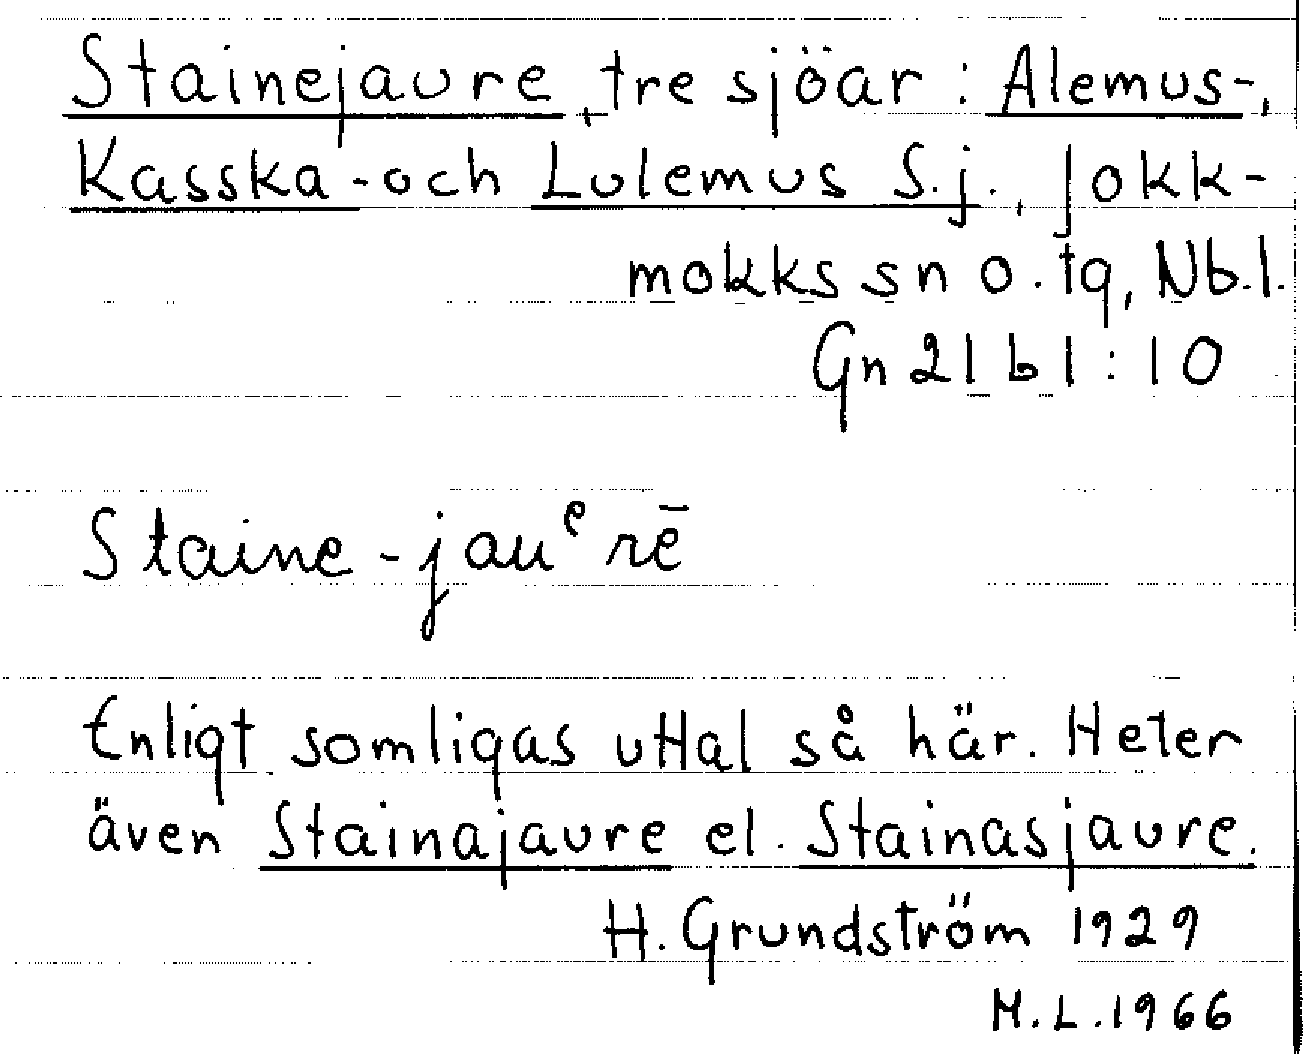 Stainejaure, tre sjöar: Alemus-,
Kasska- och Lulemus S.j., Jokk-
mokks sn o. tg, Nb.l.
Gn 21 b 1:10
Staine-jauᵉrē
Enligt somligas uttal så här. Heter
även Stainajaure el. Stainasjaure.
H. Grundström 1929
M.L. 1966